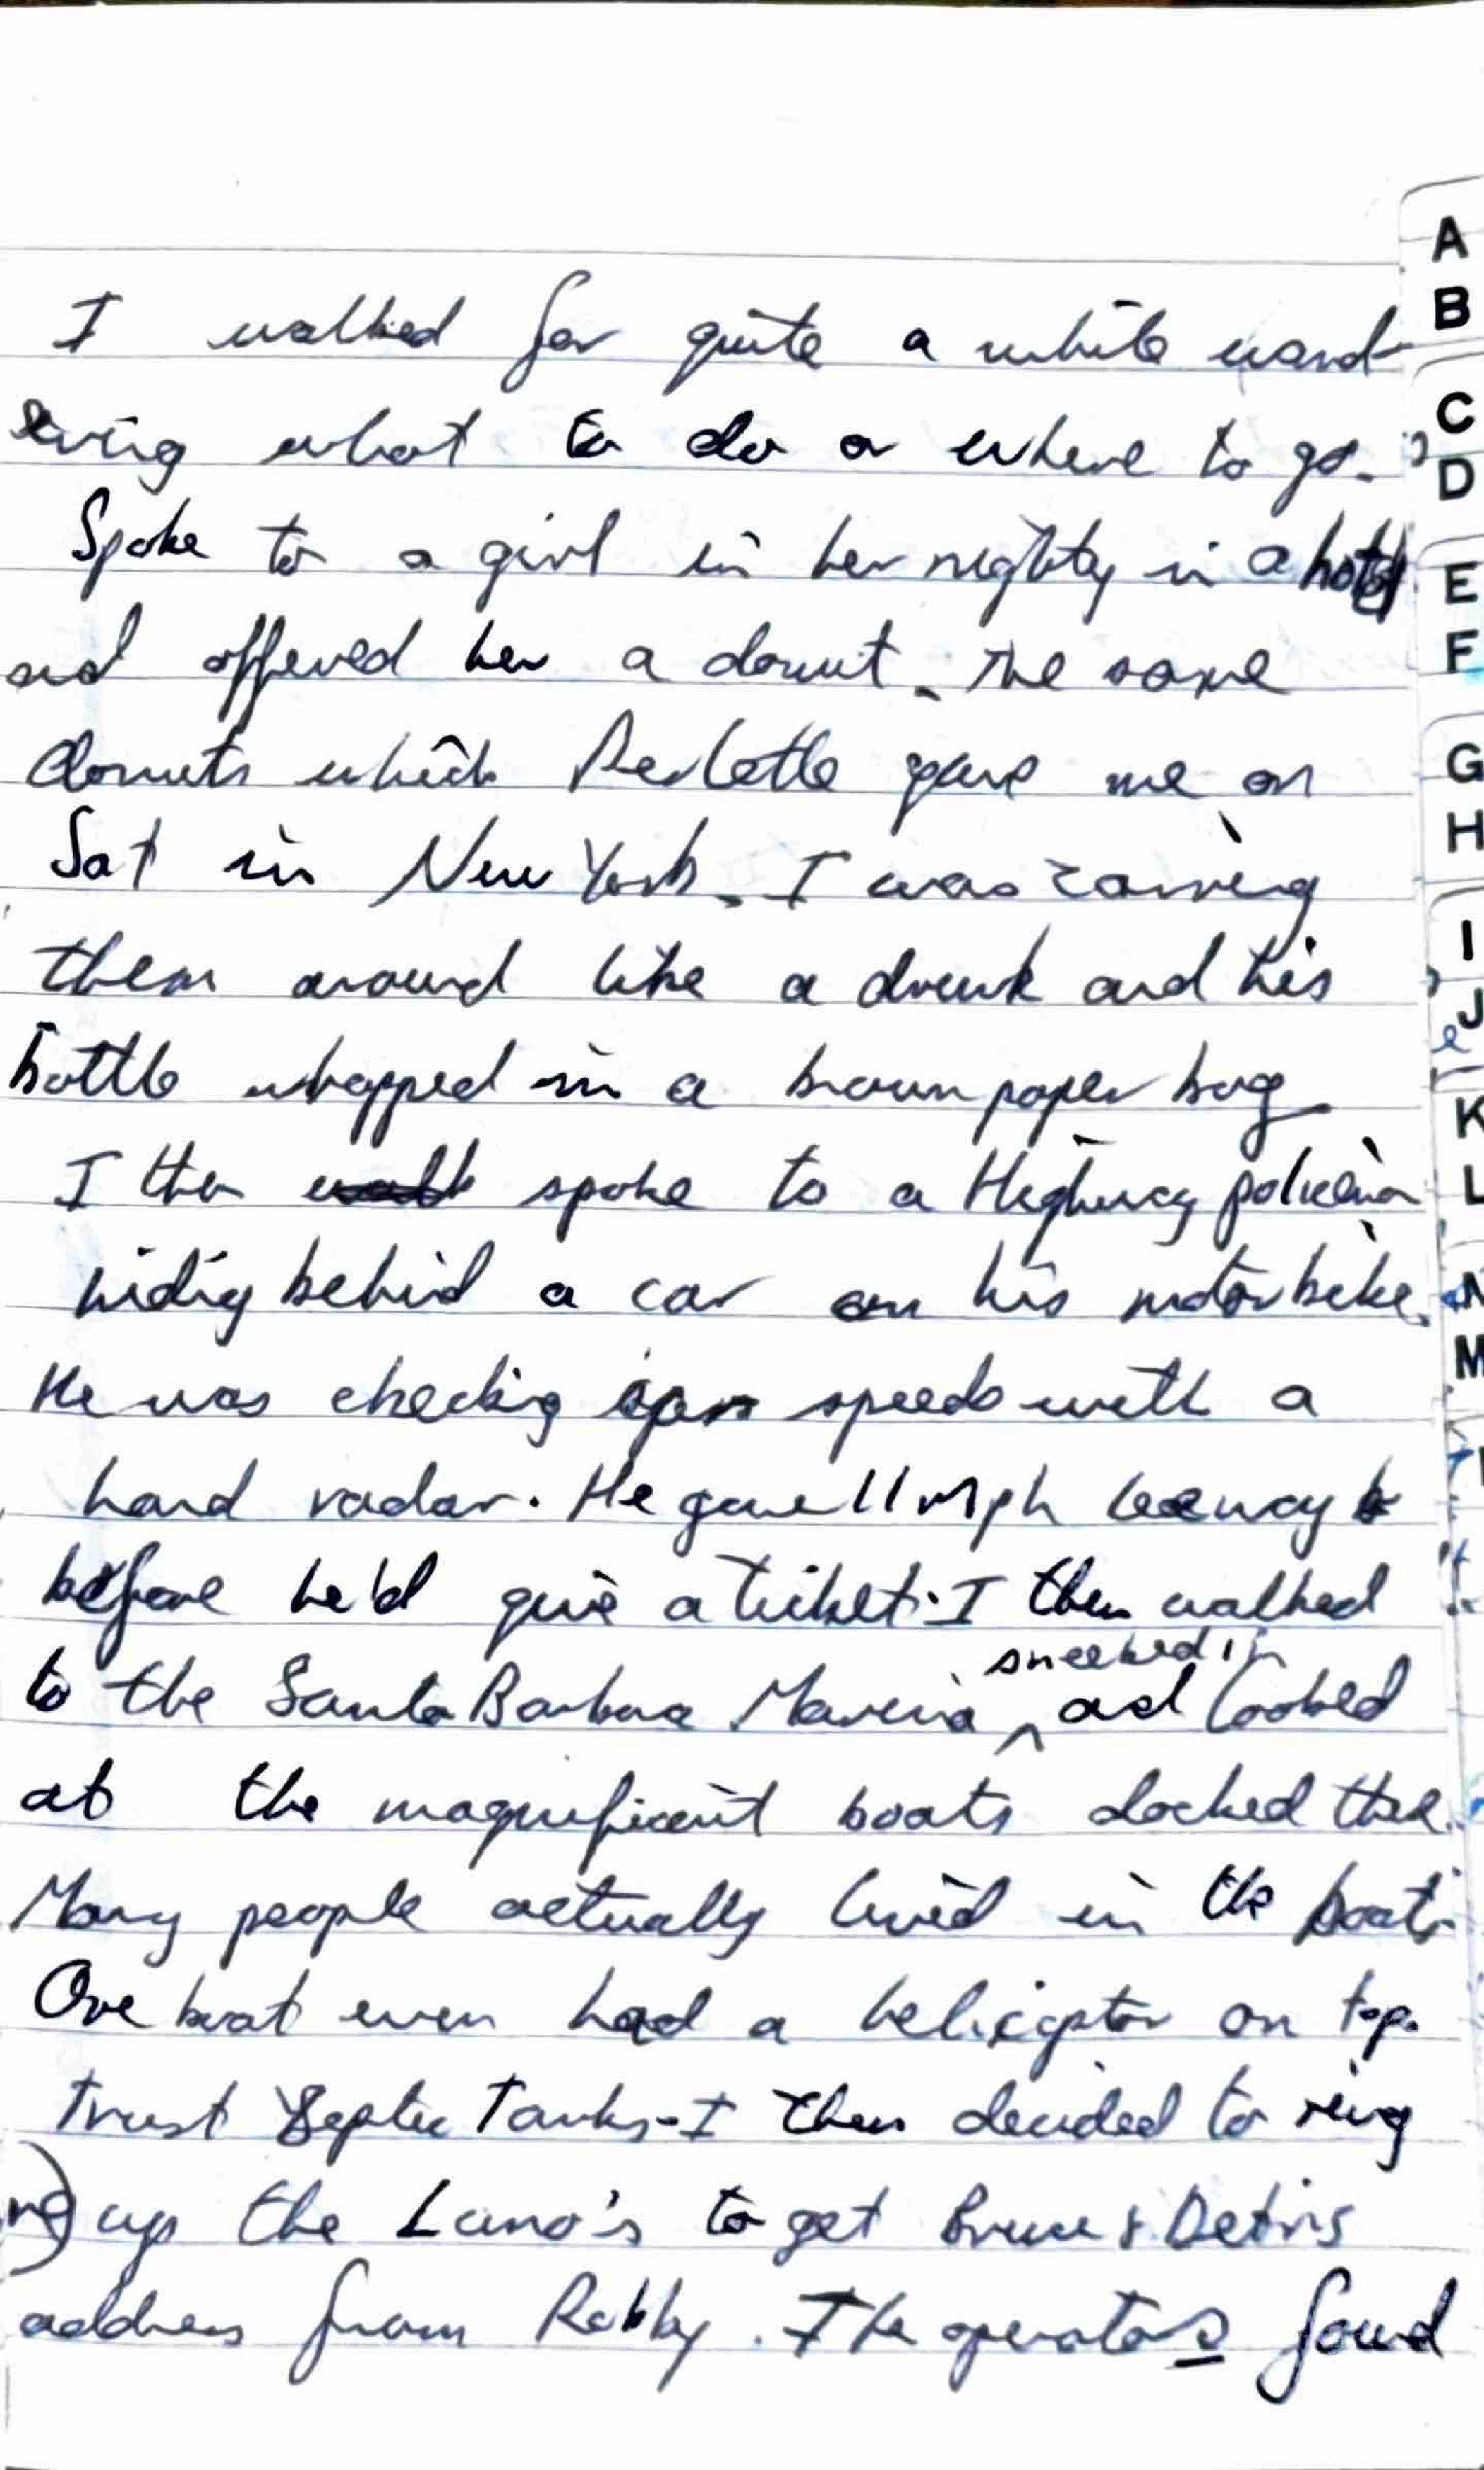 I walked for quite a while wand-
ering what to do or where to go.
Spoke to a girl in her nighty in a hotel
and offered her a donut. The same
donuts which gave me on
Sat in New York. I was carring
them around like a drunk and his
bottle whapped in a brown paper bag
I then walk spoke to a Highway policeman
hiding behind a car on his motorbike.
He was checking speeds with a
hand radar. He gave 11 mph leeway
before he'd give a ticket. I then walked
sneeked in
to the Santa Barbara Marina ^ and looked
at the magnificent boats docked there.
Many people actually lived in the boats
One boat even had a helicopter on top.
Trust Septic Tanks - I then decided to ring
up the to get Bruce &
address from Robby. The operators found
A
B
C
D
E
F
G
H
I
J
K
L
N
M